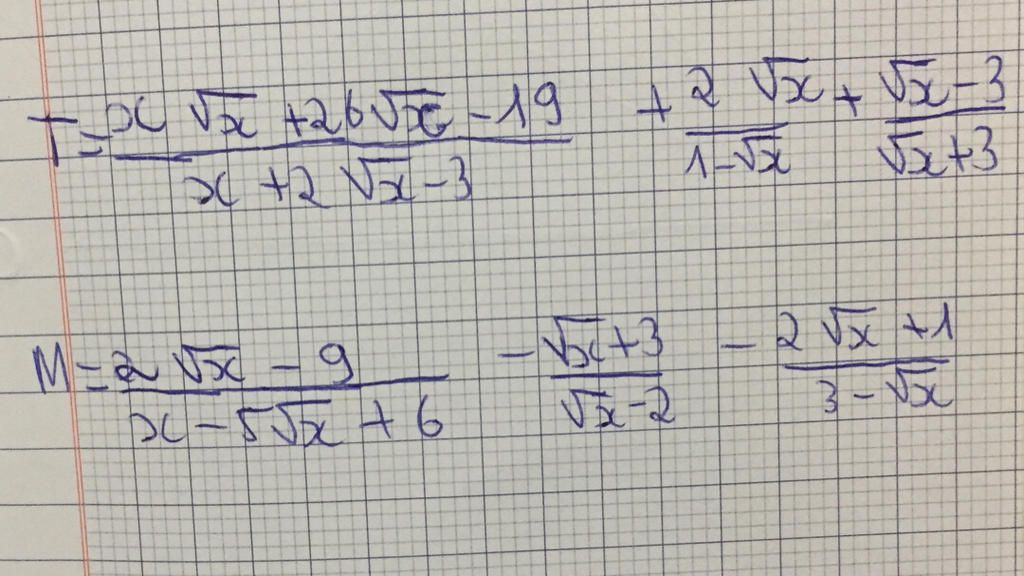 T = (x√x + 26√x - 19)/(x + 2√x - 3) + (2√x)/(1 - √x) + (√x - 3)/(√x + 3)
M = (2√x - 9)/(x - 5√x + 6) - (√x + 3)/(√x - 2) - (2√x + 1)/(3 - √x)